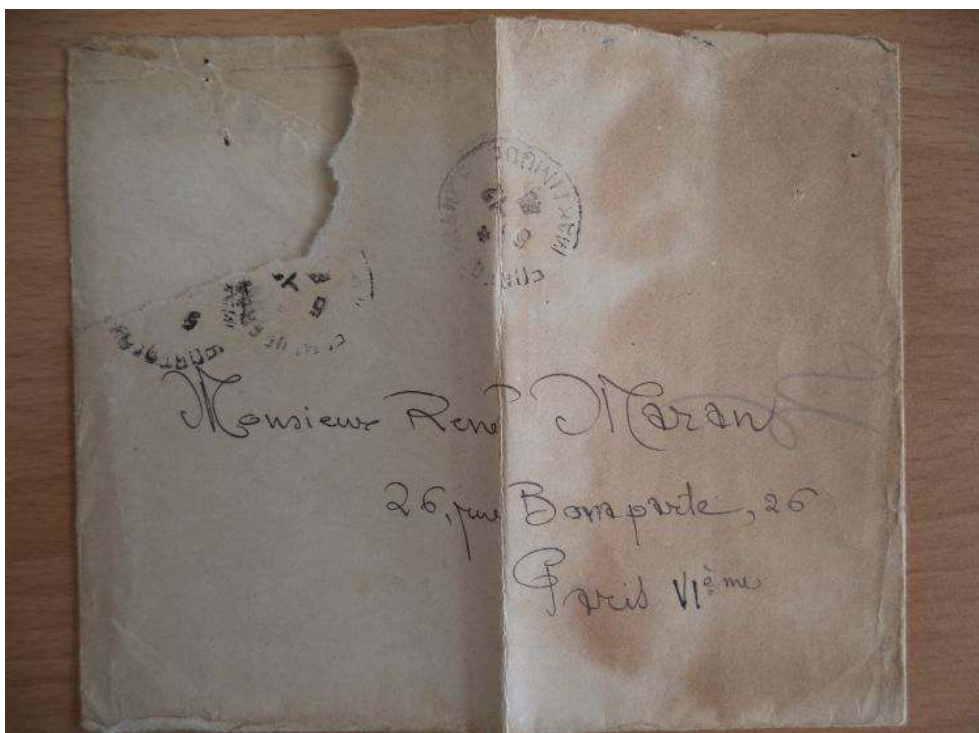 Monsieur René Maran
26, rue Bonaparte, 26
Paris VIème